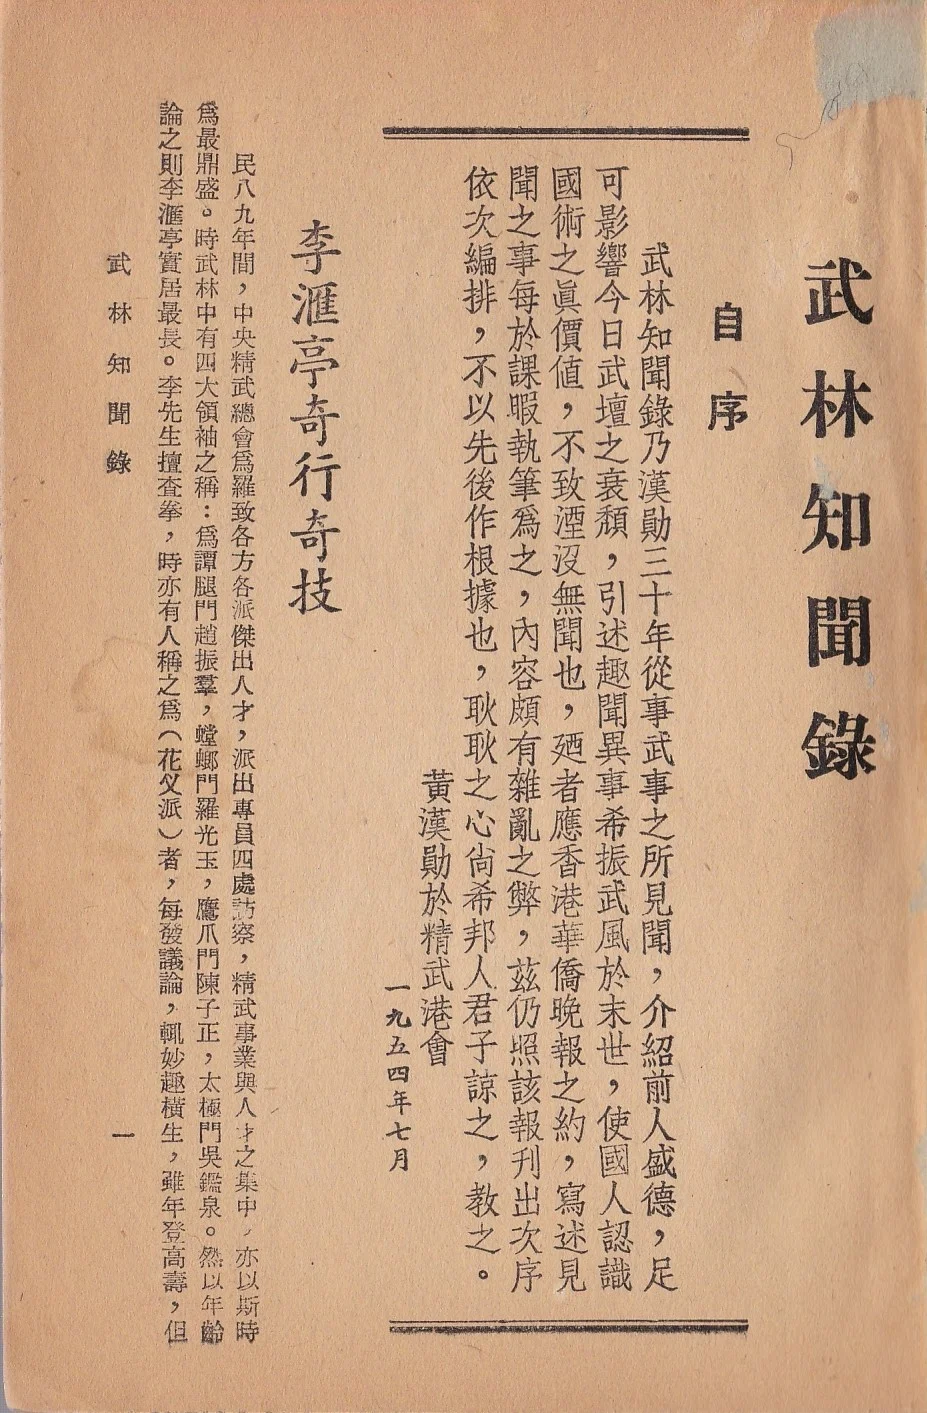 武林知聞錄
自序
武林知聞錄乃漢勛三十年從事武事之所見聞，介紹前人盛德，足
可影響今日武壇之衰頹，引述趣聞異事希振武風於末世，使國人認識
國術之眞價值，不致湮沒無聞也，廼者應香港華僑晚報之約，寫述見
聞之事每於課暇執筆爲之，內容頗有雜亂之弊，茲仍照該報刋出次序
依次編排，不以先後作根據也，耿耿之心尙希邦人君子諒之，教之。
黃漢勛於精武港會
一九五四年七月
李滙亭奇行奇技
民八九年間，中央精武總會爲羅致各方各派傑出人才，派出專員四處訪察，精武事業與人才之集中，亦以斯時
爲最鼎盛。時武林中有四大領袖之稱：爲譚腿門趙振羣，螳螂門羅光玉，鷹爪門陳子正，太極門吳鑑泉。然以年齡
論之則李滙亭實居最長。李先生擅查拳，時亦有人稱之爲（花父派）者，每發議論，輒妙趣橫生，雖年登高壽，但
武林知聞錄
一